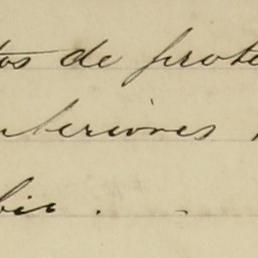 tos de prote
nteriores
bir.